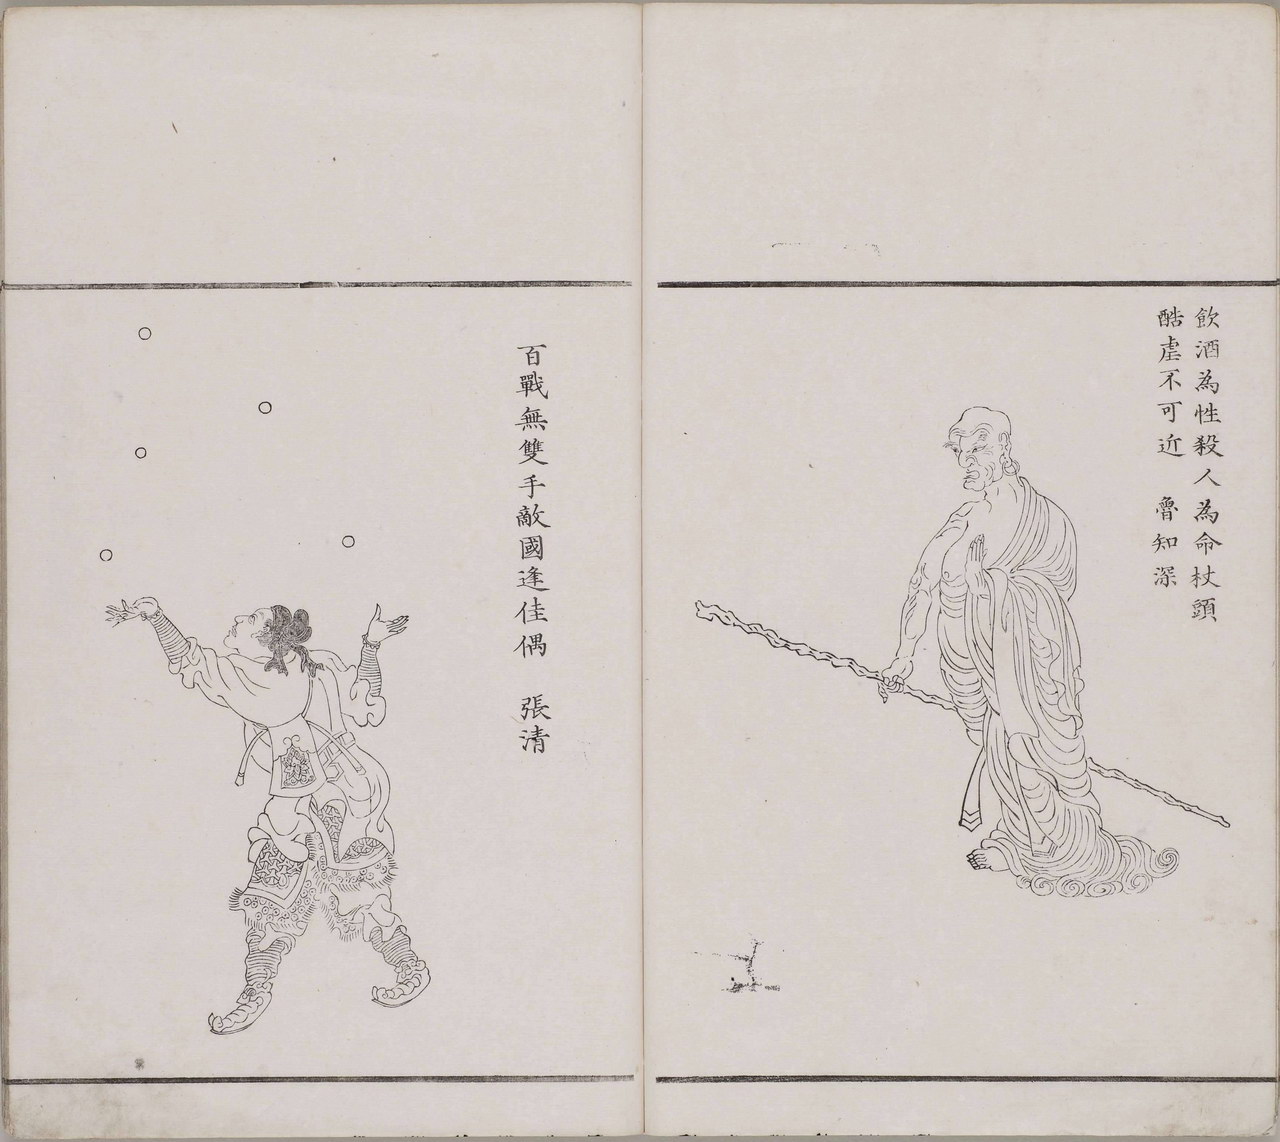 飲酒為性殺人為命杖頭
酷虐不可近 魯知深
百戰無雙手敵國逢佳偶 張清